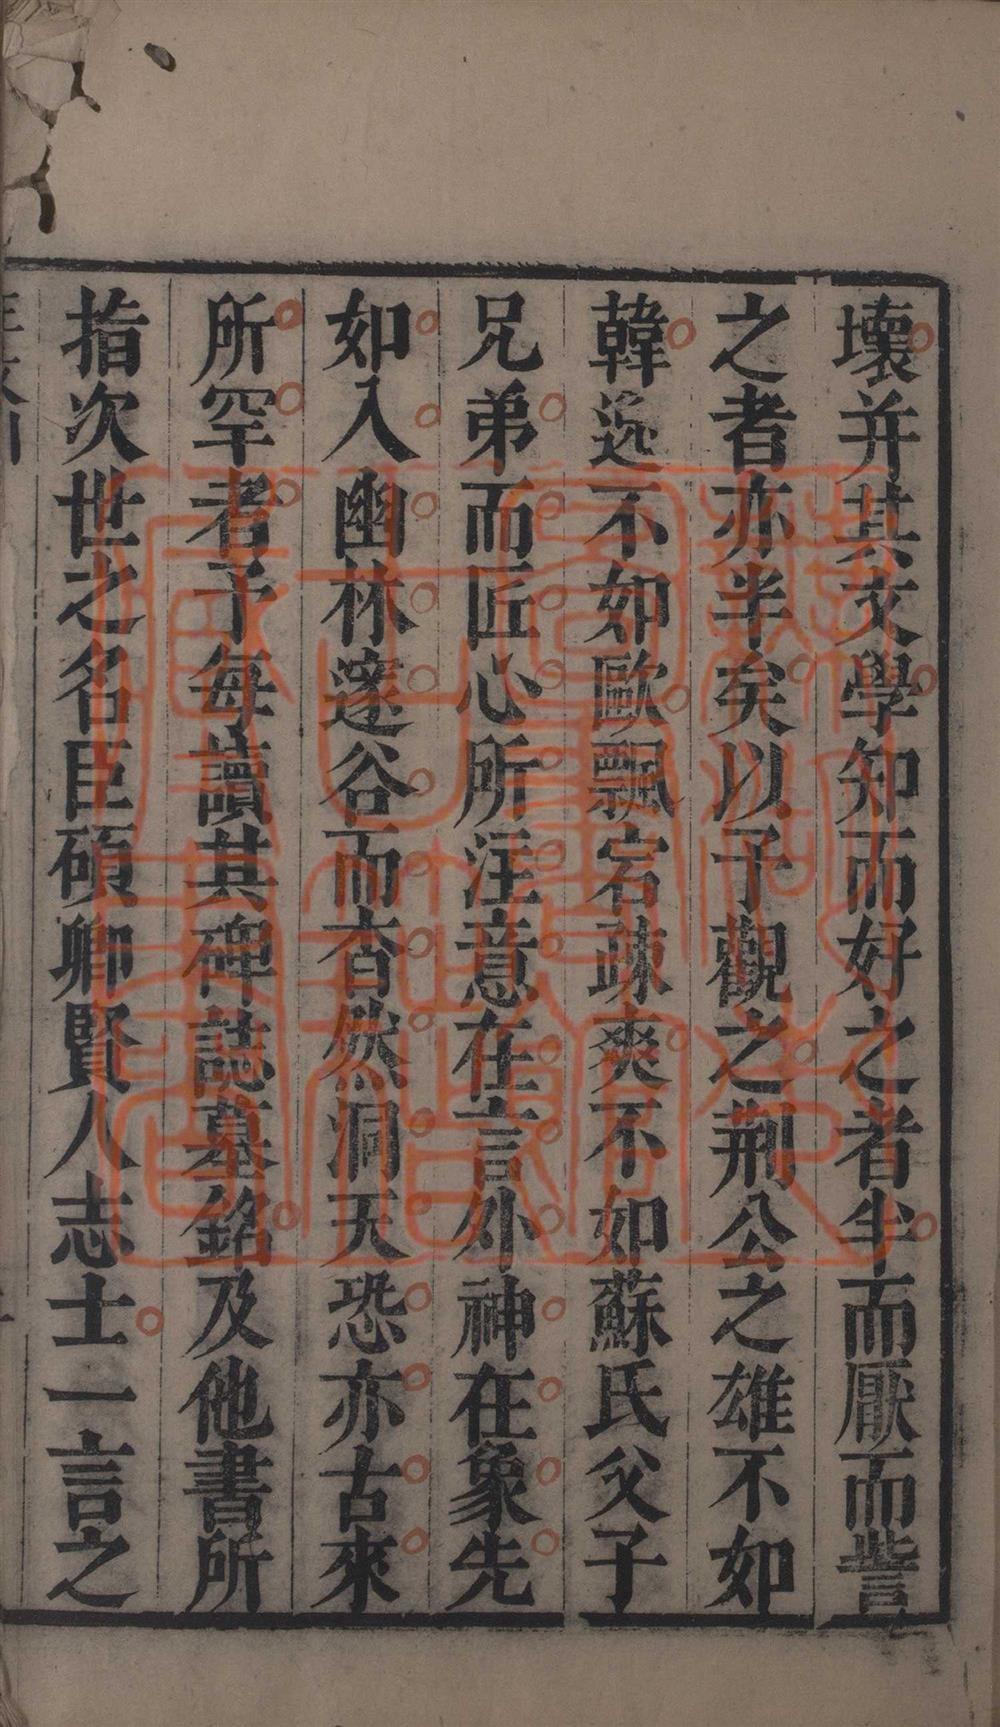 壞并其文學知而好之者半而厭而訾
之者亦半矣以予觀之荆公之雄不如
韓逸不如歐飄宕疎爽不如蘇氏父子
兄弟而匠心所注意在言外神在象先
如入幽林邃谷而杳然洞天恐亦古來
所罕者予每讀其碑誌墓銘及他書所
指次世之名臣碩卿賢人志士一言之